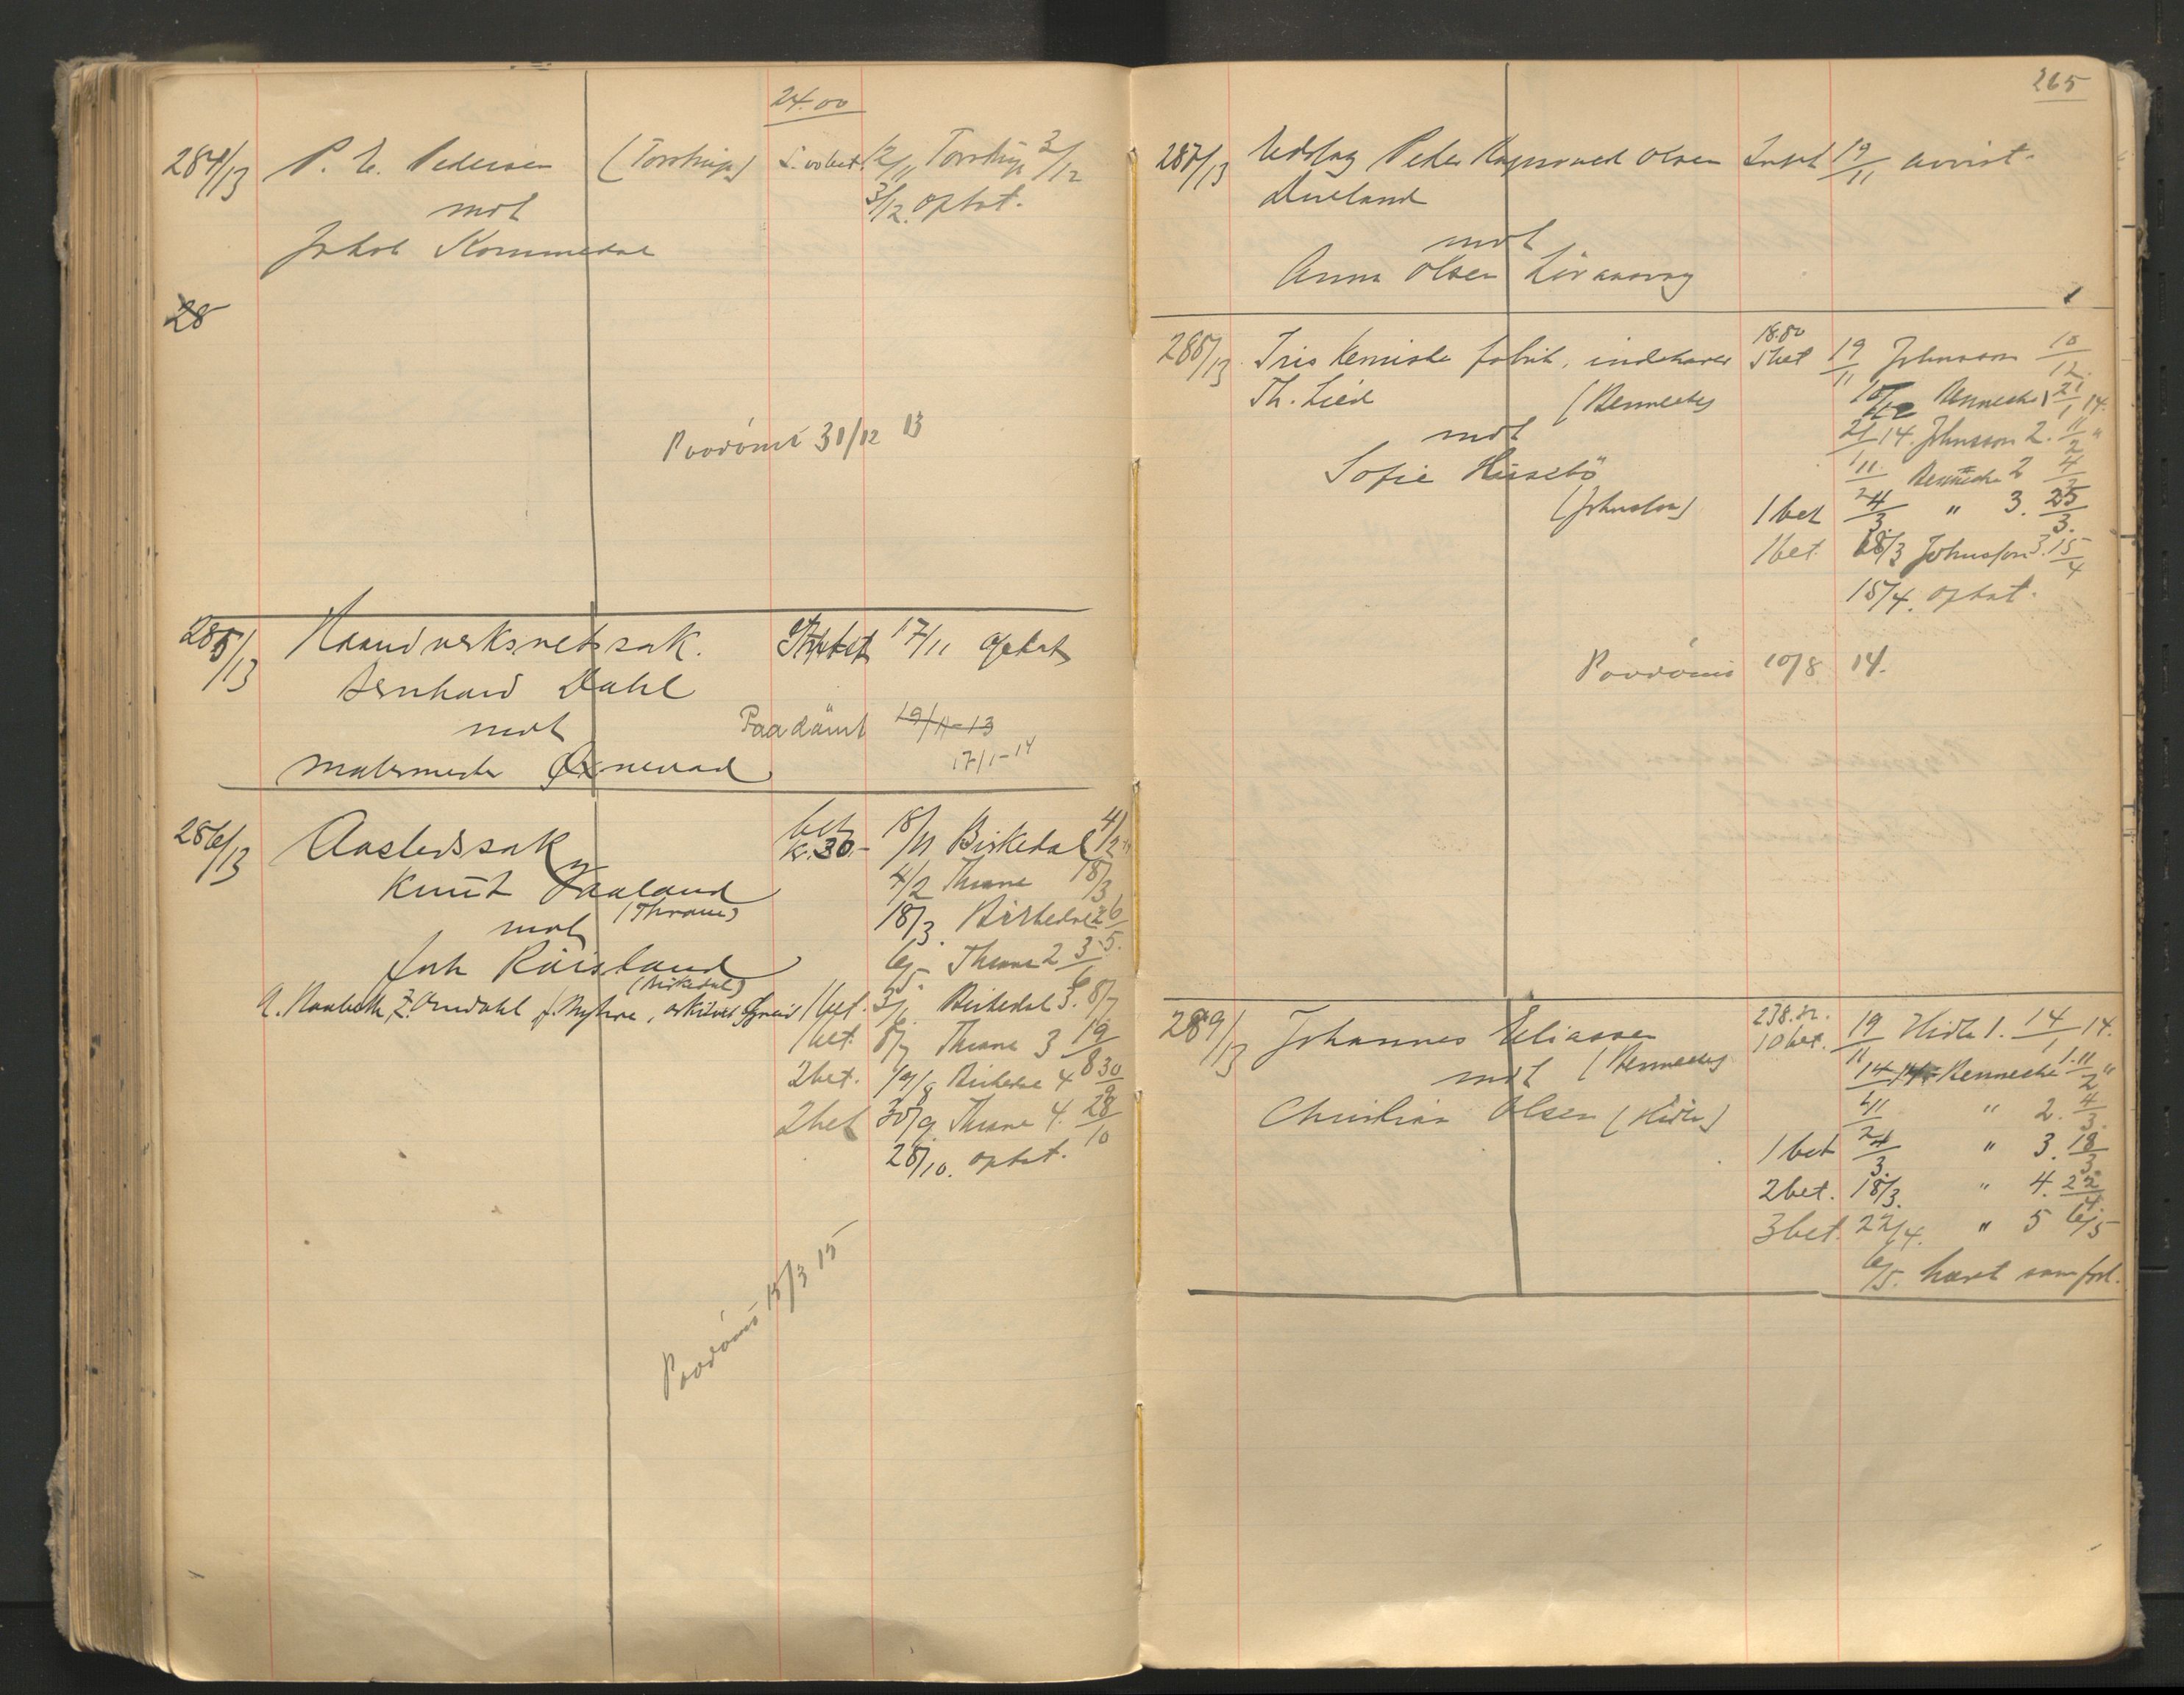 24.00
284/13 P. E. Pedersen (Torstrup) 12/11 Torstrup 3/12
mot 3/12. optat.
Jakob Kommedal
28
Paadömt 31/12 13
285/13 Haandverksretssak. 17/11 optat
Bernhard Dahl
mot Paadömt 19/11-13
malermester Øxnevad 17/1-14
286/13 Aastedssak bet kr. 30.- 18/11 Birkedal 4/2
Knut Vaaland 4/2 Thrane 18/3
(Thrane)
mot 18/3. Birkedal 2 6/5.
Joh Röisland 6/5 Thrane 2 3/6
(Birkedal)
1 bet. 3/6. Birkedal 3. 8/7
1 bet. 8/7 Thrane 3 19/8
2 bet. 19/8 Birkedal 4 30/9
2 bet 30/9. Thrane 4. 28/10
28/10. optat.
Paadömt 15/3 15
265
287/13 Utslag Peder Olsen 19/11 avvist.
mot
Anna Olsen
288/13 Iris kemiske fabrik, indehaver 18.80 5 bet 19/11 Johnsson 10/12.
Th. Lied (Benneche) 10/12 Benneche 1 21/1 14.
mot 21/1 14. Johnsson 2. 11/2 "
Sofie Hussebö 11/2 Benneche 2 4/3
(Johnsson) 1 bet 4/3. " 3. 25/3.
1 bet. 25/3 Johnsson 3. 15/4
15/4. optat.
Paadömt 10/8 14.
289/13 Johannes Eliassen 10 bet. 19/11 Hidle 1. 14/1 14.
mot (Benneche) 14/1 14. Benneche 1. 11/2 "
Christian Olsen (Hidle) 11/2 " 2. 4/3.
1 bet 4/3. " 3. 18/3.
2 bet. 18/3. " 4. 22/4.
3 bet. 22/4. " 5 6/5
6/5. hævet som forl.